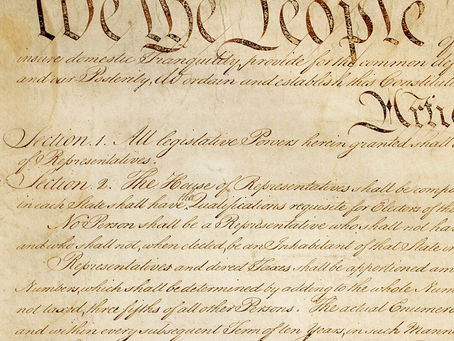 We the People
insure domestic Tranquility, provide for the common
and our Posterity, do ordain and establish this Constitut
Artic
Section. 1. All legislative Powers herein granted shall
of Representatives.
Section. 2. The House of Representatives shall be comp
in each State shall have the Qualifications requisite for Electors of the
No Person shall be a Representative who shall not ha
and who shall not, when elected, be an Inhabitant of that State in
Representatives and direct Taxes shall be apportioned am
Numbers, which shall be determined by adding to the whole Num
not taxed, three fifths of all other Persons. The actual Enumer
and within every subsequent Term of ten Years, in such Mann